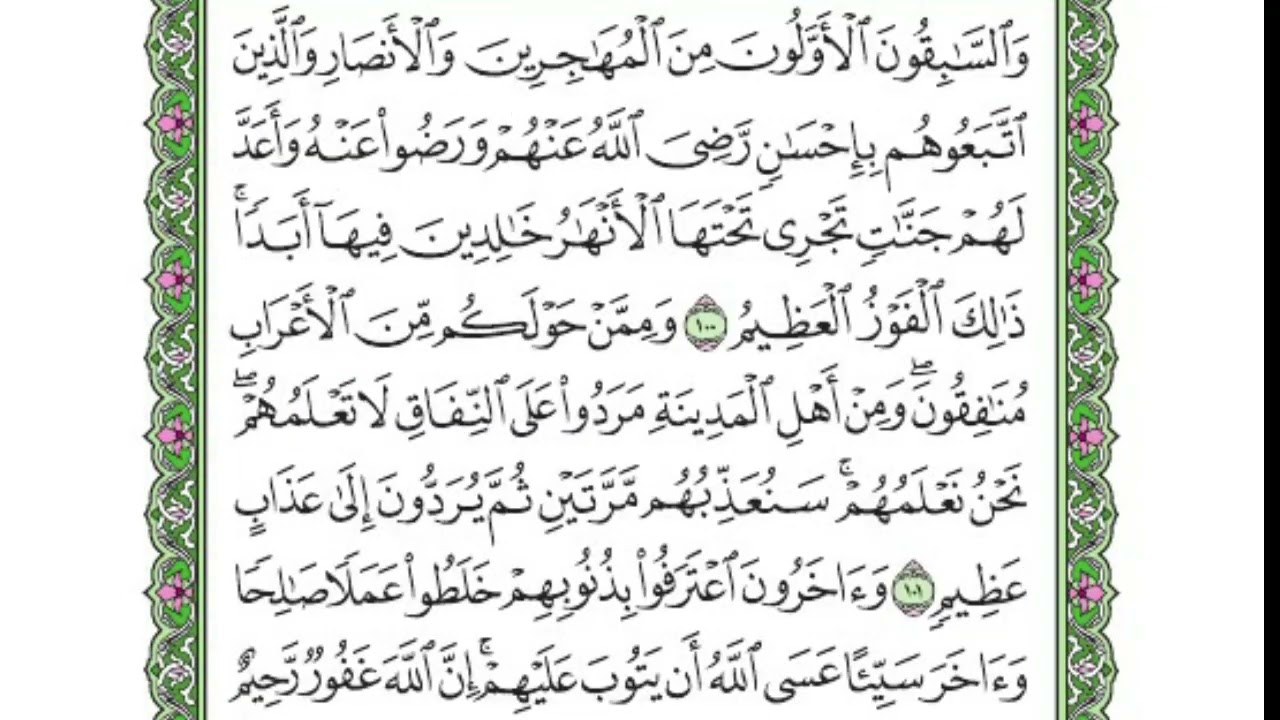 وَٱلسَّٰبِقُونَ ٱلْأَوَّلُونَ مِنَ ٱلْمُهَٰجِرِينَ وَٱلْأَنصَارِ وَٱلَّذِينَ
ٱتَّبَعُوهُم بِإِحْسَٰنٍ رَّضِىَ ٱللَّهُ عَنْهُمْ وَرَضُوا۟ عَنْهُ وَأَعَدَّ
لَهُمْ جَنَّٰتٍ تَجْرِى تَحْتَهَا ٱلْأَنْهَٰرُ خَٰلِدِينَ فِيهَآ أَبَدًا ۚ
ذَٰلِكَ ٱلْفَوْزُ ٱلْعَظِيمُ ١٠٠ وَمِمَّنْ حَوْلَكُم مِّنَ ٱلْأَعْرَابِ
مُنَٰفِقُونَ ۖ وَمِنْ أَهْلِ ٱلْمَدِينَةِ مَرَدُوا۟ عَلَى ٱلنِّفَاقِ لَا تَعْلَمُهُمْ ۖ
نَحْنُ نَعْلَمُهُمْ ۚ سَنُعَذِّبُهُم مَّرَّتَيْنِ ثُمَّ يُرَدُّونَ إِلَىٰ عَذَابٍ
عَظِيمٍ ١٠١ وَءَاخَرُونَ ٱعْتَرَفُوا۟ بِذُنُوبِهِمْ خَلَطُوا۟ عَمَلًا صَٰلِحًا
وَءَاخَرَ سَيِّئًا عَسَى ٱللَّهُ أَن يَتُوبَ عَلَيْهِمْ ۚ إِنَّ ٱللَّهَ غَفُورٌ رَّحِيمٌ